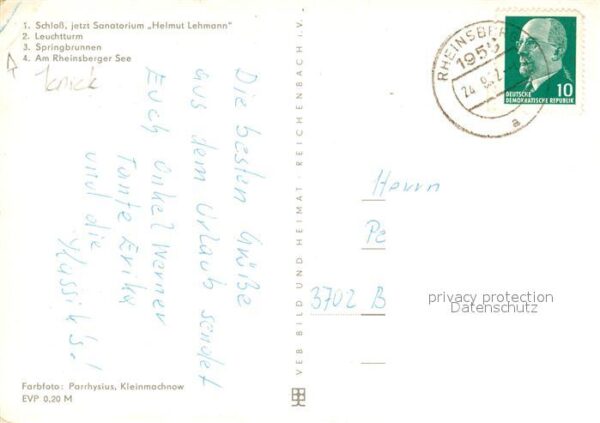 1. Schloß, jetzt Sanatorium „Helmut Lehmann"
2. Leuchtturm
3. Springbrunnen
4. Am Rheinsberger See
Die besten Grüße
aus dem Urlaub sendet
Euch Onkel Werner
Tante Erika
und die
Farbfoto: Parrhysius, Kleinmachnow
EVP 0,20 M
VEB BILD UND HEIMAT · REICHENBACH i. V.
RHEINSBERG
1955
a
DEUTSCHE
DEMOKRATISCHE REPUBLIK
10
Herrn
Pe
3702 B
privacy protection
Datenschutz